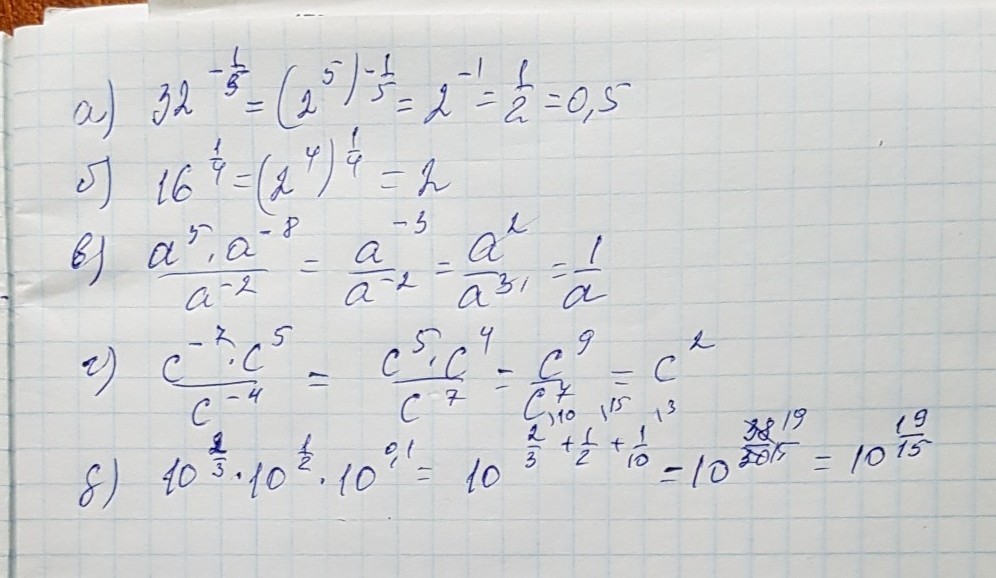 а) 32^(-1/5) = (2^5)^(-1/5) = 2^(-1) = 1/2 = 0,5
б) 16^(1/4) = (2^4)^(1/4) = 2
в) (a^5 · a^(-8))/(a^(-2)) = a^(-3)/a^(-2) = a^2/a^3 = 1/a
г) (c^(-7) · c^5)/(c^(-4)) = (c^5 · c^4)/(c^7) = c^9/c^7 = c^2
д) 10^(2/3) · 10^(1/2) · 10^(0,1) = 10^(2/3 + 1/2 + 1/10) = 10^(38/30) = 10^(19/15)